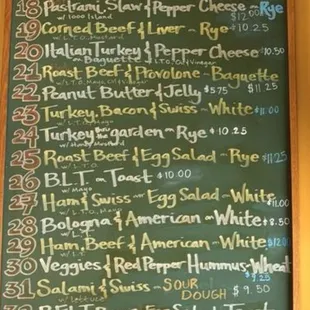 18 Pastrami, Slaw & Pepper Cheese on Rye
w/ 1000 Island $12.00
19 Corned Beef & Liver on Rye $10.25
w/ L.T.O. Mustard
20 Italian Turkey & Pepper Cheese $10.50
on Baguette w/ L.T.O. Oil & Vinegar
21 Roast Beef & Provolone on Baguette
w/ L.T. Mayo, Oil & Vinegar $11.25
22 Peanut Butter & Jelly $5.75
23 Turkey, Bacon & Swiss on White $11.00
w/ L.T. Mayo
24 Turkey the garden on Rye $10.25
w/ Honey Mustard
25 Roast Beef & Egg Salad on Rye $11.25
w/ L.T.O.
26 B.L.T. on Toast $10.00
w/ Mayo
27 Ham & Swiss Egg Salad on White
w/ L.T.O. Mayo $11.00
28 Bologna & American on White $8.50
w/ L.T.O.
29 Ham, Beef & American on White $12.00
w/ L.T.O. Mayo
30 Veggies & Red Pepper Hummus on Wheat
$9.25
31 Salami & Swiss on SOUR
DOUGH $9.50
w/ Lettuce